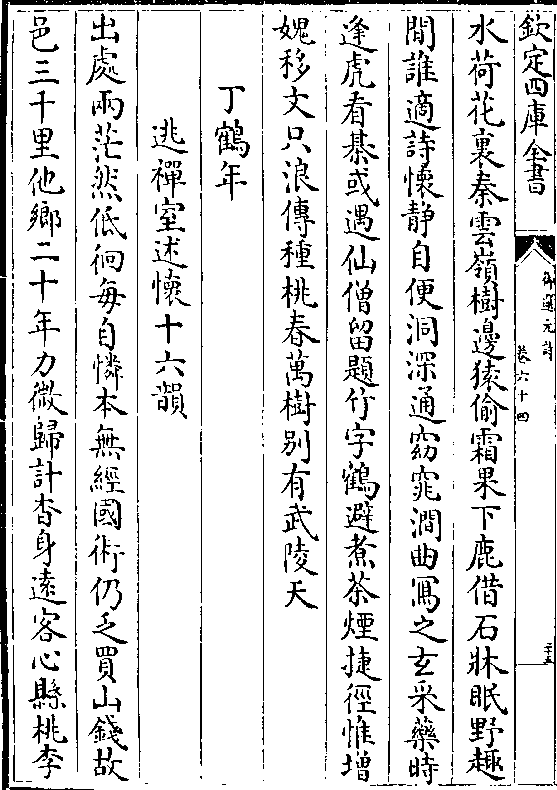 欽定四庫全書
御選元詩
卷六十四
三十五
水荷花裏秦雲嶺樹邊猿偷霜果下鹿借石牀眠野趣
閒誰適詩懷靜自便洞深通窈窕澗曲寫之玄采藥時
逢虎看棊或遇仙僧留題竹字鶴避煮茶煙捷徑惟增
媿移文只浪傳種桃春萬樹别有武陵天
丁鶴年
逃禪室述懷十六韻
出處兩茫然低徊每自憐本無經國術仍乏買山錢故
邑三千里他鄉二十年力微歸計杳身遠客心懸桃李